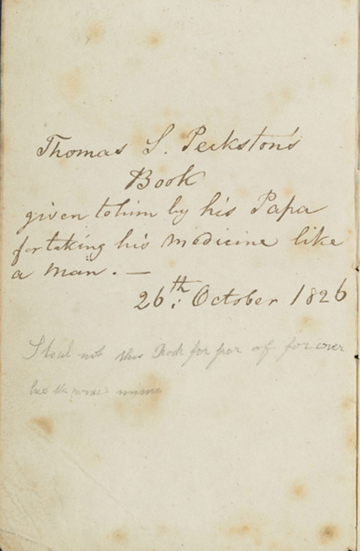 Thomas S. Peckston's
Book
given to him by his Papa
for taking his medicine like
a man. —
26th. October 1826
Steal not this Book for